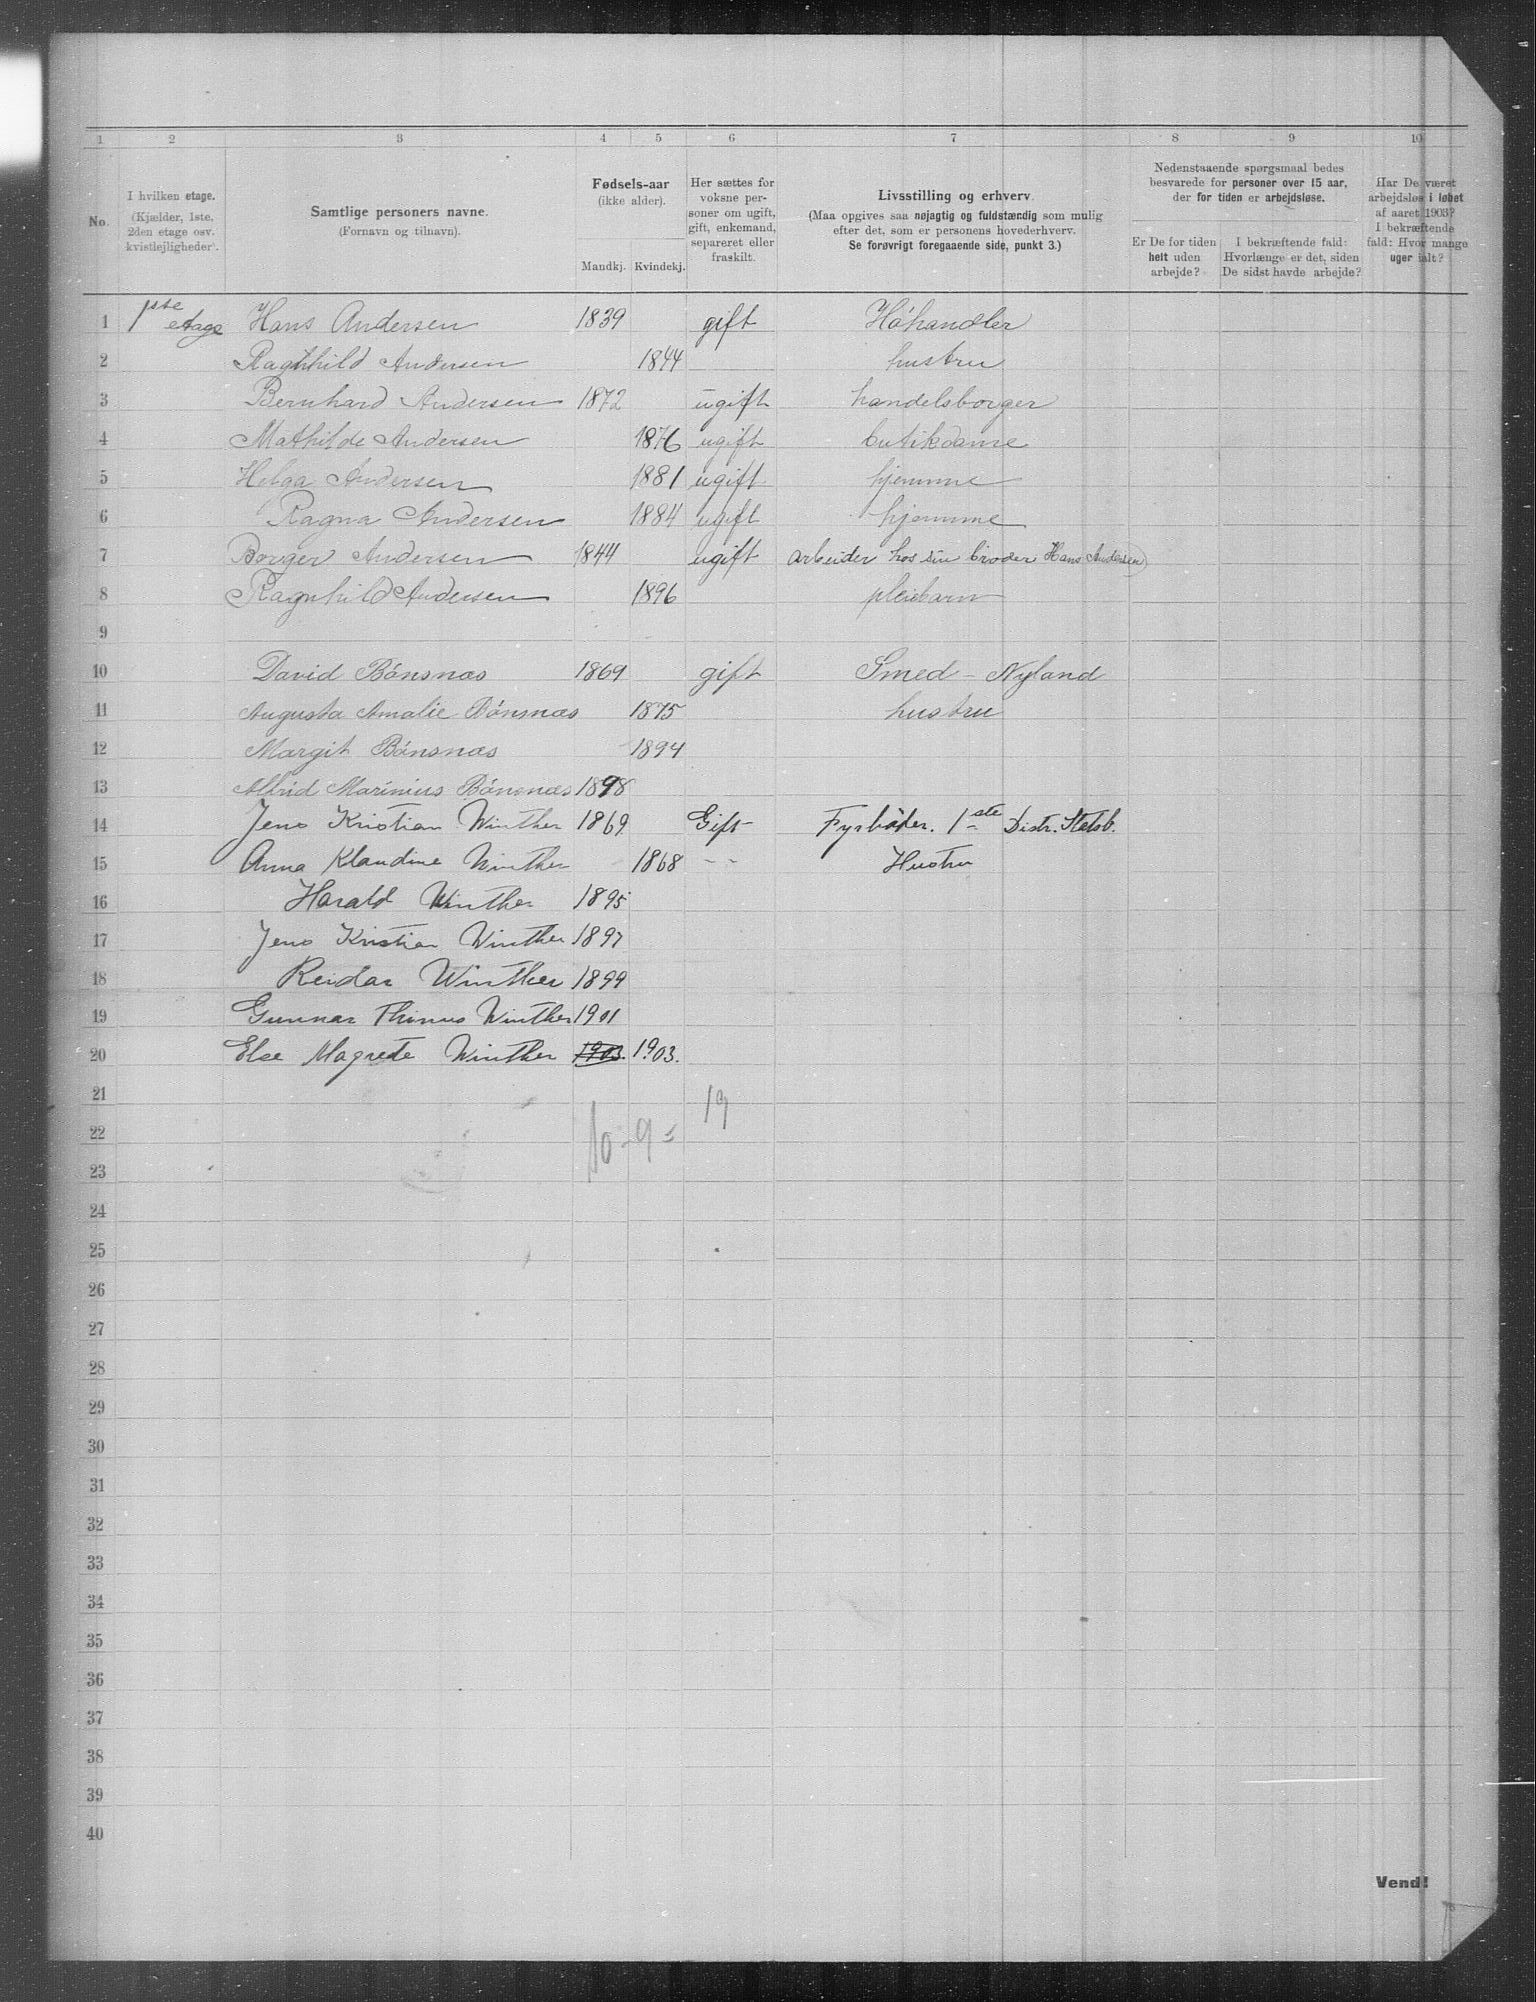 1 2 3 4 5 6 7 8 9 10
No.
I hvilken etage.
(Kjælder, 1ste,
2den etage osv.
kvistlejligheder).
Samtlige personers navne.
(Fornavn og tilnavn).
Fødsels-aar
(ikke alder).
Mandkj. Kvindekj.
Her sættes for
voksne per-
soner om ugift,
gift, enkemand,
separeret eller
fraskilt.
Livsstilling og erhverv.
(Maa opgives saa nøjagtig og fuldstændig som mulig
efter det, som er personens hovederhverv.
Se forøvrigt foregaaende side, punkt 3.)
Nedenstaaende spørgsmaal bedes
besvarede for personer over 15 aar,
der for tiden er arbejdsløse.
Er De for tiden
helt uden
arbejde?
I bekræftende fald:
Hvorlænge er det, siden
De sidst havde arbejde?
Har De været
arbejdsløs i løbet
af aaret 1903?
I bekræftende
fald: Hvor mange
uger ialt?
1 1ste etage Hans Andersen 1839 gift Høhandler
2 Ragnhild Andersen 1844 hustru
3 Bernhard Andersen 1872 ugift handelsborger
4 Mathilde Andersen 1876 ugift butikdame
5 Helga Andersen 1881 ugift hjemme
6 Ragna Andersen 1884 ugift hjemme
7 Borger Andersen 1844 ugift arbeider hos sin broder Hans Andersen)
8 Ragnhild Andersen 1896 pleibarn
9
10 David Bónsnæs 1869 gift Smed - Nyland
11 Augusta Amalie Bónsnæs 1875 hustru
12 Margit Bónsnæs 1894
13 Marinius Bónsnæs 1898
14 Jens Kristian Winther 1869 Gift Fyrbøder. 1ste Distr. Statsb.
15 Anna Klaudine Winther 1868 - - Hustru
16 Harald Winther 1895
17 Jens Kristian Winther 1897
18 Reidar Winther 1899
19 Gunnar Thinus Winther 1901
20 Else Magrete Winther 1903. 1903.
21
22
10 - 9 = 19
23
24
25
26
27
28
29
30
31
32
33
34
35
36
37
38
39
40
Vend!